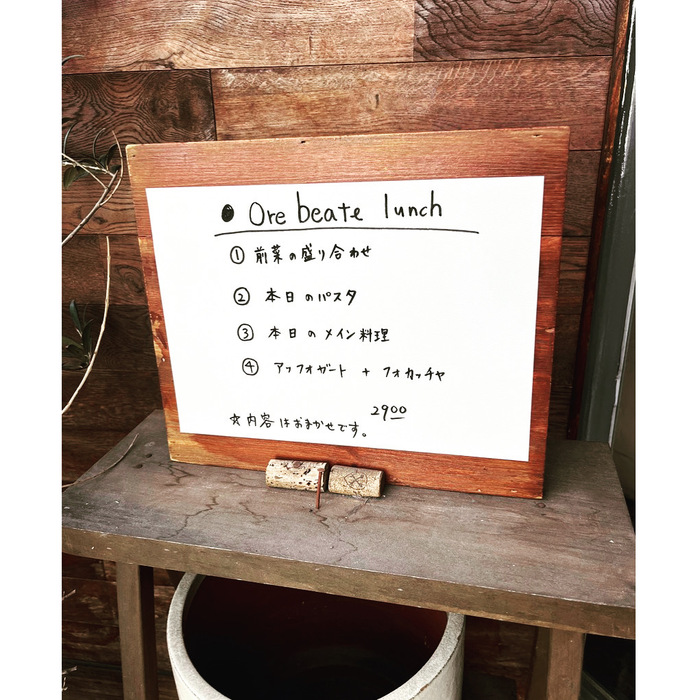 ● Ore beate lunch
① 前菜の盛り合わせ
② 本日のパスタ
③ 本日のメイン料理
④ アッフォガート + フォカッチャ
2900
☆内容はおまかせです。